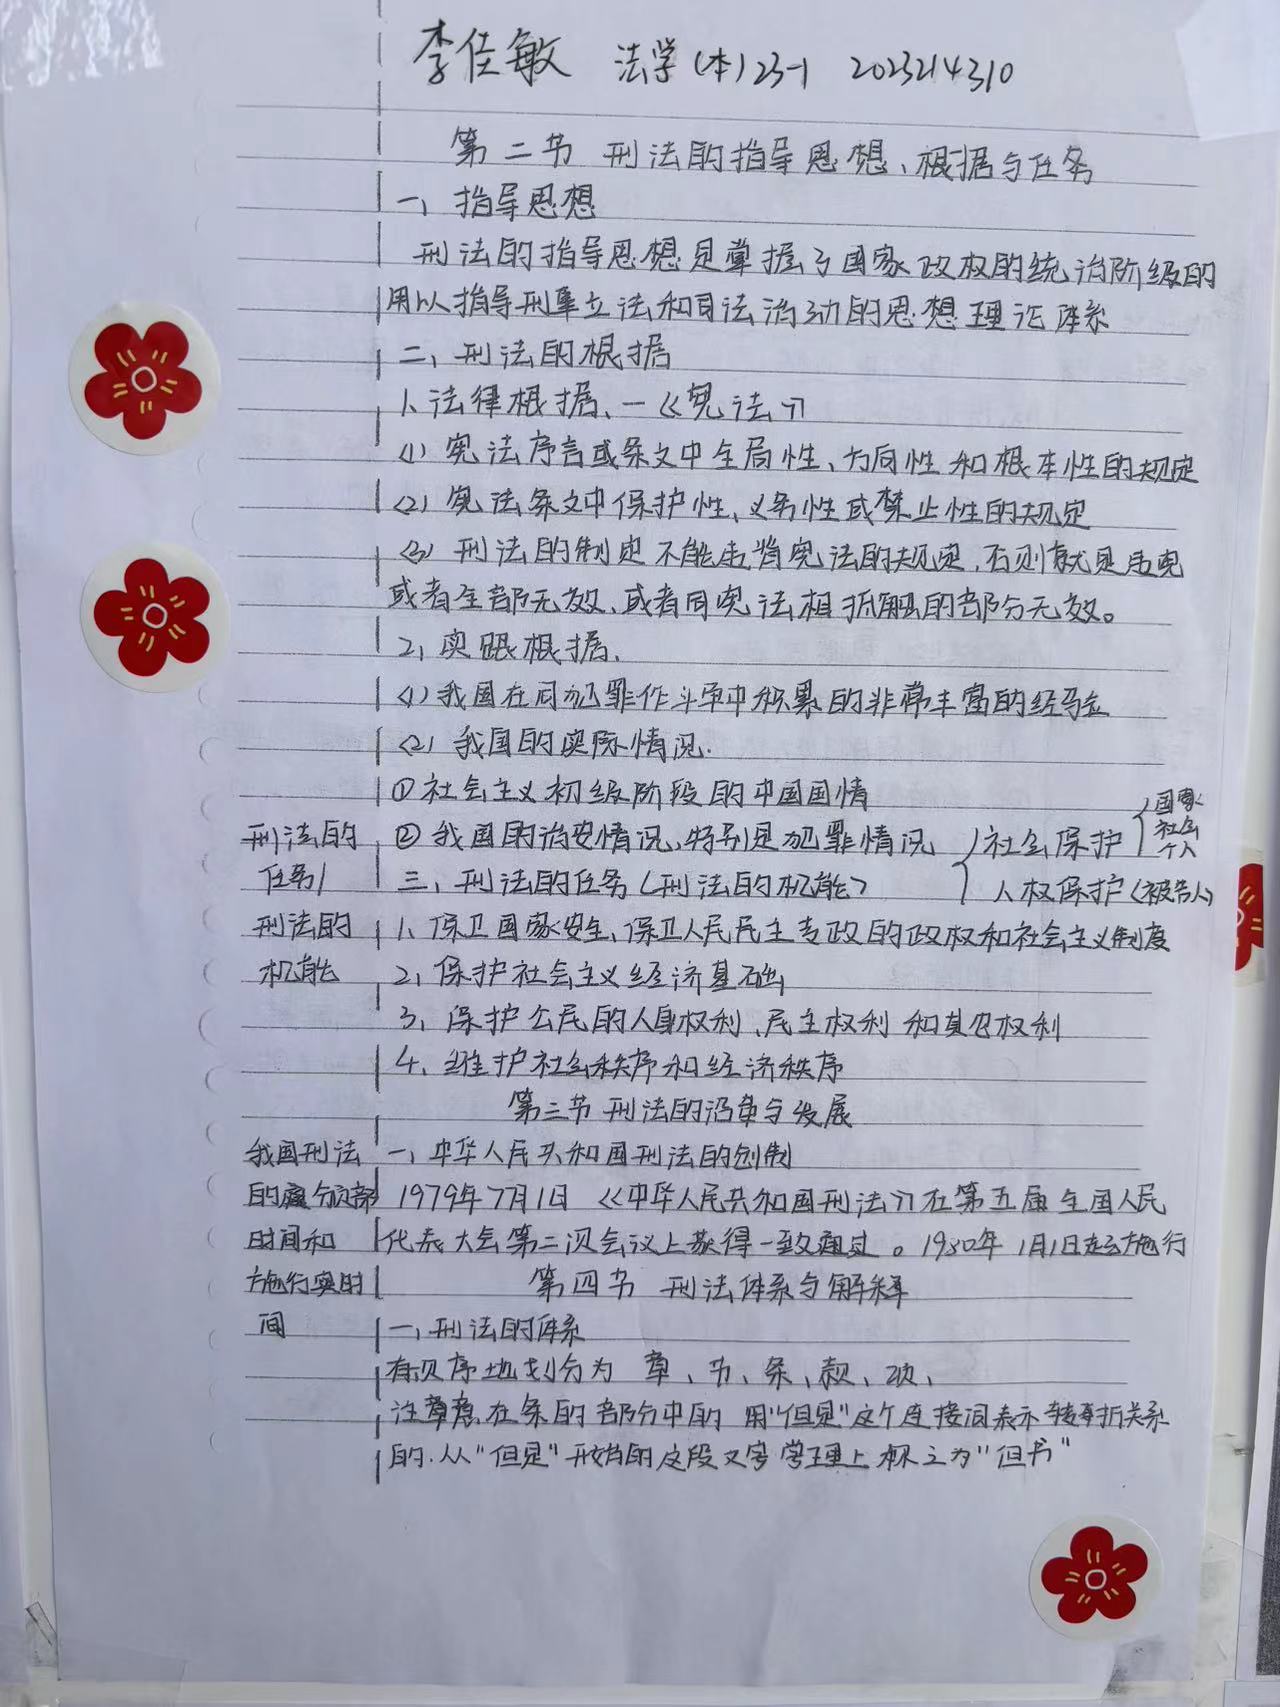 李佳敏 法学(本)23-1 2023214310
第二节 刑法的指导思想、根据与任务
一、指导思想
刑法的指导思想是掌握了国家政权的统治阶级的
用以指导刑事立法和司法活动的思想理论体系
二、刑法的根据
1、法律根据、一《宪法》
(1) 宪法序言或条文中全局性、方向性和根本性的规定
(2) 宪法条文中保护性、义务性或禁止性的规定
(3) 刑法的制定不能违背宪法的规定，否则就是违宪
或者全部无效、或者同宪法相抵触的部分无效。
2、实践根据、
(1) 我国在同犯罪作斗争中积累的非常丰富的经验
(2) 我国的实际情况.
①社会主义初级阶段的中国国情
②我国的治安情况、特别是犯罪情况
三、刑法的任务(刑法的机能)
社会保护
国家
社会
个人
人权保护(被告人)
刑法的
任务/
刑法的
机能
1、保卫国家安全、保卫人民民主专政的政权和社会主义制度
2、保护社会主义经济基础
3、保护公民的人身权利、民主权利和其他权利
4、维护社会秩序和经济秩序
第三节 刑法的沿革与发展
我国刑法
的颁部
时间和
施行实时
间
一、中华人民共和国刑法的创制
1979年7月1日《中华人民共和国刑法》在第五届全国人民
代表大会第二次会议上获得一致通过。1980年1月1日起施行
第四节 刑法体系与解释
一、刑法的体系
有顺序地划分为 章、节、条、款、项、
注意在条的部分中的 用"但是"这个连接词表示转折关系
的.从"但是"开始的这段文字学理上称之为"但书"